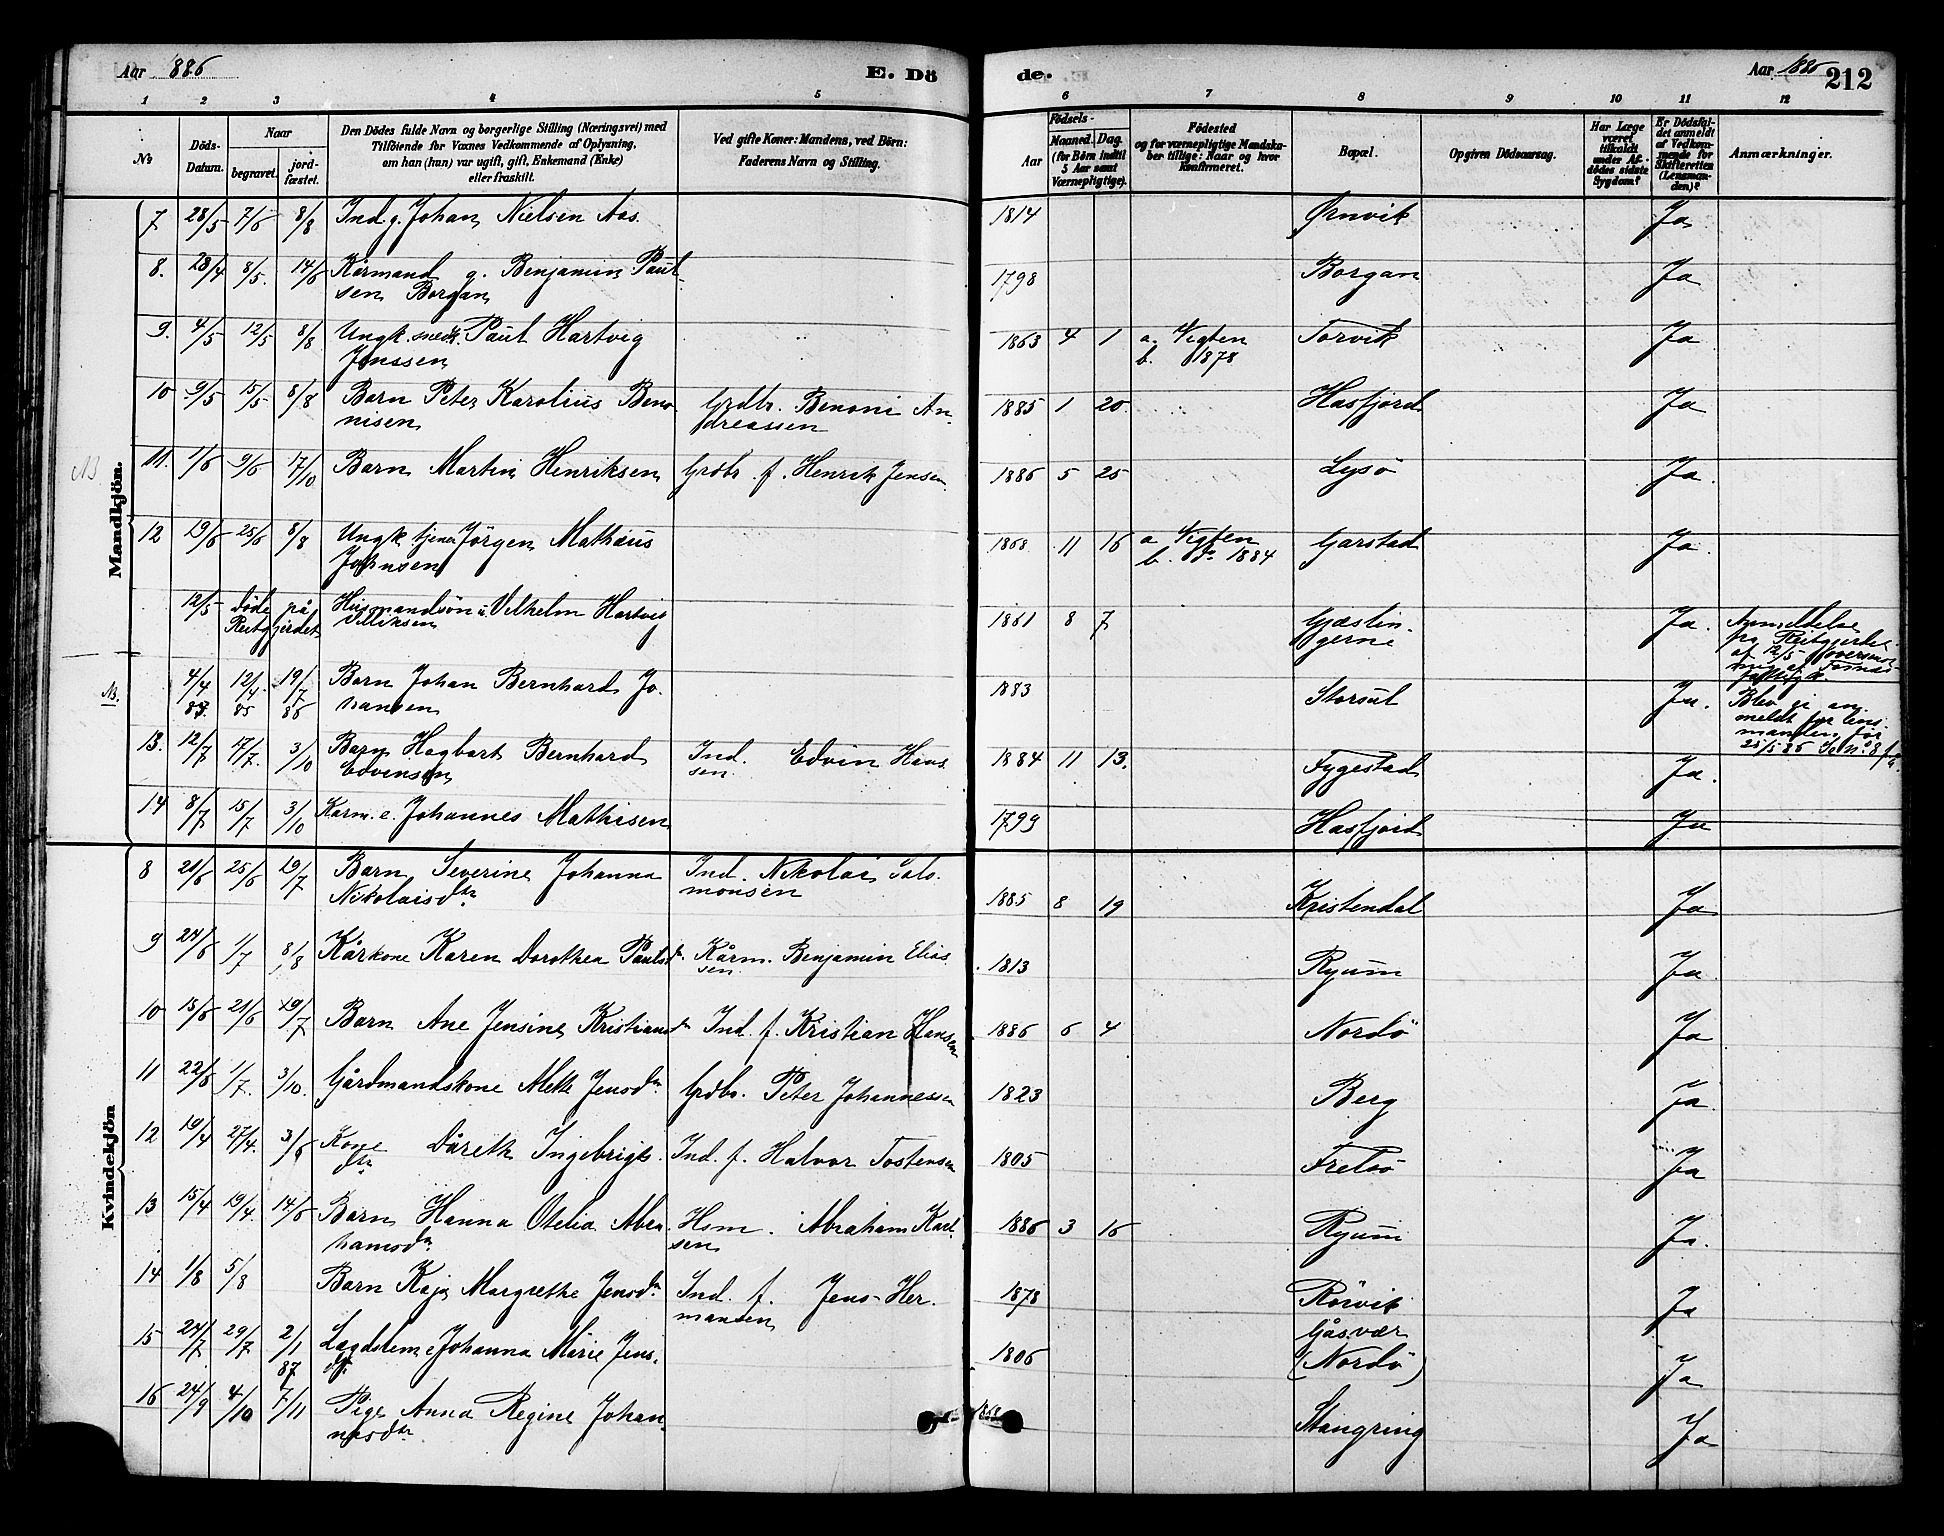 Aar 886 E. Dö
de. Aar 1886 212
1 2 3 4 5
6 7 8 9 10 11 12
No
Döds-Datum.
Naar
begravet.
jord-fæstet.
Den Dödes fulde Navn og borgerlige Stilling (Næringsvei) med
Tilföiende for Voxnes Vedkommende af Oplysning,
om han (hun) var ugift, gift, Enkemand (Enke)
eller fraskilt.
Ved gifte Koner: Mandens, ved Börn:
Faderens Navn og Stilling.
Födsels-
Aar
Maaned. Dag.
(for Börn indtil
5 Aar samt
Værnepligtige).
Födested
og for værnepligtige Mandska-
ber tillige: Naar og hvor
Konfirmeret.
Bopæl.
Opgiven Dödsaarsag.
Har Læge
været
tilkaldt
under Af-
dödes sidste
Sygdom?
Er Dödsfal-
det anmeldt
af Vedkom-
mende for
Skifteretten
(Lensman-
den)?
Anmærkninger.
Mandkjön.
7 28/5 7/6 8/8 Ind. g. Johan Nielsen Aas. 1814 Ørnvik Ja
8. 28/4 8/5. 14/6 Kårmand g. Benjamin Paul-
sen Borgan 1798 Borgan Ja
9. 4/5 12/5 8/8 Ungk. Paul Hartvig
Jenssen 1863 4 1 a. Vigten
b. 1878 Torvik Ja
10 9/5 15/5 8/8 Barn Peter Karolius Beno-
nisen Grdbr. Benoni An-
dreassen 1885 1 20. Hasfjord Ja
NB. 11. 1/6 9/6 17/10 Barn Martin Henriksen Grdbr. f. Henrik Jensen. 1886 5 25 Lysö Ja
12 19/6 25/6 8/8 Ungk. tjener Jörgen Mathæus
Johnsen 1868 11 16 a Vigten
b. do 1884 Garstad Ja.
12/5 døde på
Reitgjerdet Husmandsön u. Vilhelm Hartvig
Villiksen 1861 8 7 Gjæslin-
gerne Ja. Anmeldelse
fra Reitgjerdet
af 12/5
NB. 4/4 85. 12/4 85 19/7 86 Barn Johan Bernhard Jo-
hansen 1883 Storsul Ja. Blev ei an-
meldt for lens-
manden før
13. 12/7 17/7. 3/10 Barn Hagbart Bernhard
Edvensen Ind. Edvin Hans-
sen. 1884 11 13. Fygestad Ja.
14 8/7 15/7 3/10 Karm. e. Johannes Mathisen 1799 Hasfjord Ja
Kvindekjön
8 21/6 25/6 19/7 Barn Severine Johanna
Nikolaisdtr Ind. Nikolai Salo-
monsen 1885 8 19 Kristendal Ja
9 24/6 1/7 8/8 Kårkone Karen Dorothea Paulsdr. Kårm. Benjamin Elias-
sen. 1813 Ryum Ja.
10 15/6 21/6 19/7 Barn Ane Jensine Kristiansdr Ind. f. Kristian Hansen 1886 6 4 Nordö Ja
11 22/6 1/7. 3/10. Gårdmandskone Mette Jensdtr. Grdbr. Peter Johannessen 1823 Berg Ja.
12 19/4 27/4. 3/6 Kone Dåreth Ingebrigts-
dtr Ind. f. Halvor Tostensen 1805 Fretsö Ja
13 15/4 19/4 14/6 Barn Hanna Otelia Abra-
hamsdtr. Hsm. Abraham Karl-
sen 1886 3 16 Ryum Ja.
14 1/8 5/8 Barn Kaja Margrethe Jensdtr. Ind. f. Jens Her-
mansen 1878 Rörvik Ja
15 24/7 29/7 2/1 87 Lægdslem e. Johanna Marie Jens-
dtr. 1806 Gåsvær
(Nordö) Ja
16 24/9 4/10 7/11 Pige Anna Regine Johan-
nesdtr. Stangring Ja